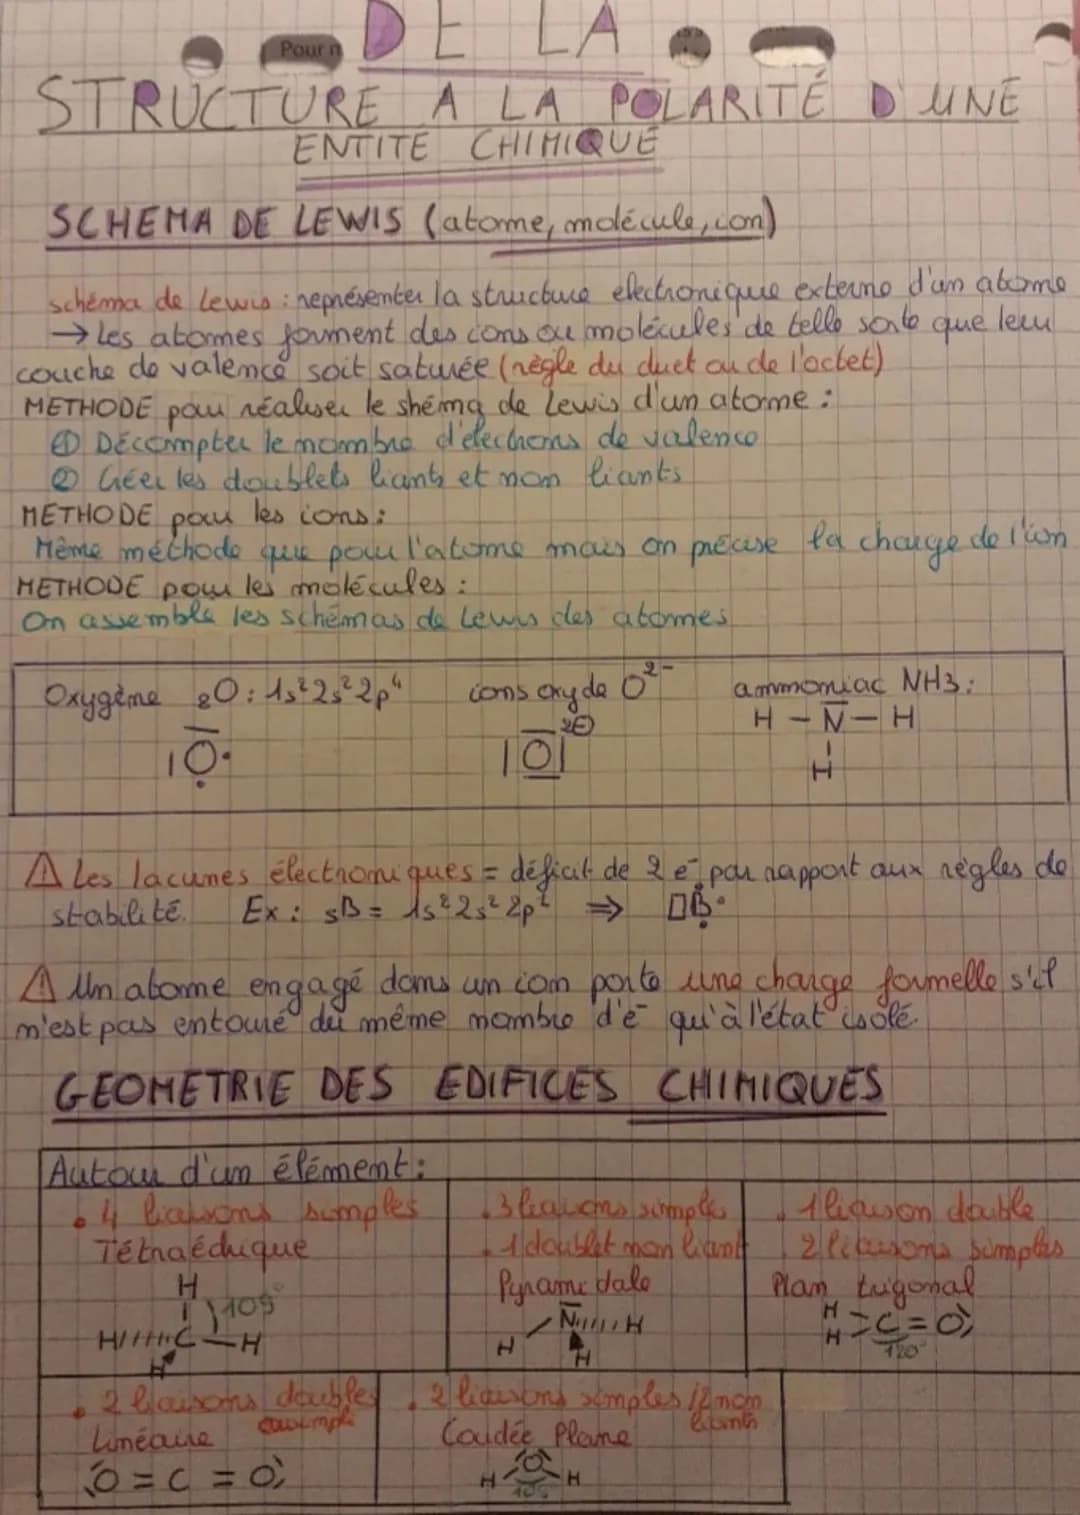 Pour n
DE LA
STRUCTURE A LA POLARITÉ D'UNE
ENTITE CHIMIQUE
SCHEMA DE LEWIS (atome, molécule, ion)
schéma de Lewis : représenter la structure électronique externe d'un atome
→ Les atomes forment des ions ou molécules de telle sorte que leur
couche de valence soit saturée (règle du duet ou de l'octet)
METHODE pour réaliser le shéma de Lewis d'un atome :
① Décompter le nombre d'électrons de valence
② Créer les doublets liants et non liants
METHODE pour les ions :
Même méthode que pour l'atome mais on précise la charge de l'ion
METHODE pour les molécules :
On assemble les schémas de Lewis des atomes
Oxygène ₈O : 1s² 2s² 2p⁴ ions oxyde O²⁻ ammoniac NH3 :
H - N - H
|O· |O| 2⊖
H
⚠ Les lacunes électroniques = déficit de 2 e⁻ par rapport aux règles de
stabilité. Ex : ₅B = 1s² 2s² 2p¹ ⇒ □B·
⚠ Un atome engagé dans un ion porte une charge formelle s'il
n'est pas entouré du même nombre d'e⁻ qu'à l'état isolé.
GEOMETRIE DES EDIFICES CHIMIQUES
Autour d'un élément :
• 4 liaisons simples
Tétraédrique
H
109°
H C - H
H
• 3 liaisons simples
• 1 doublet non liant
Pyramidale
N H
H H
• 1 liaison double
2 liaisons simples
Plan trigonal
H
H > C = O
120°
• 2 liaisons doubles
Linéaire
O = C = O
• 2 liaisons simples / 2 non
liants
Coudée Plane
H O H